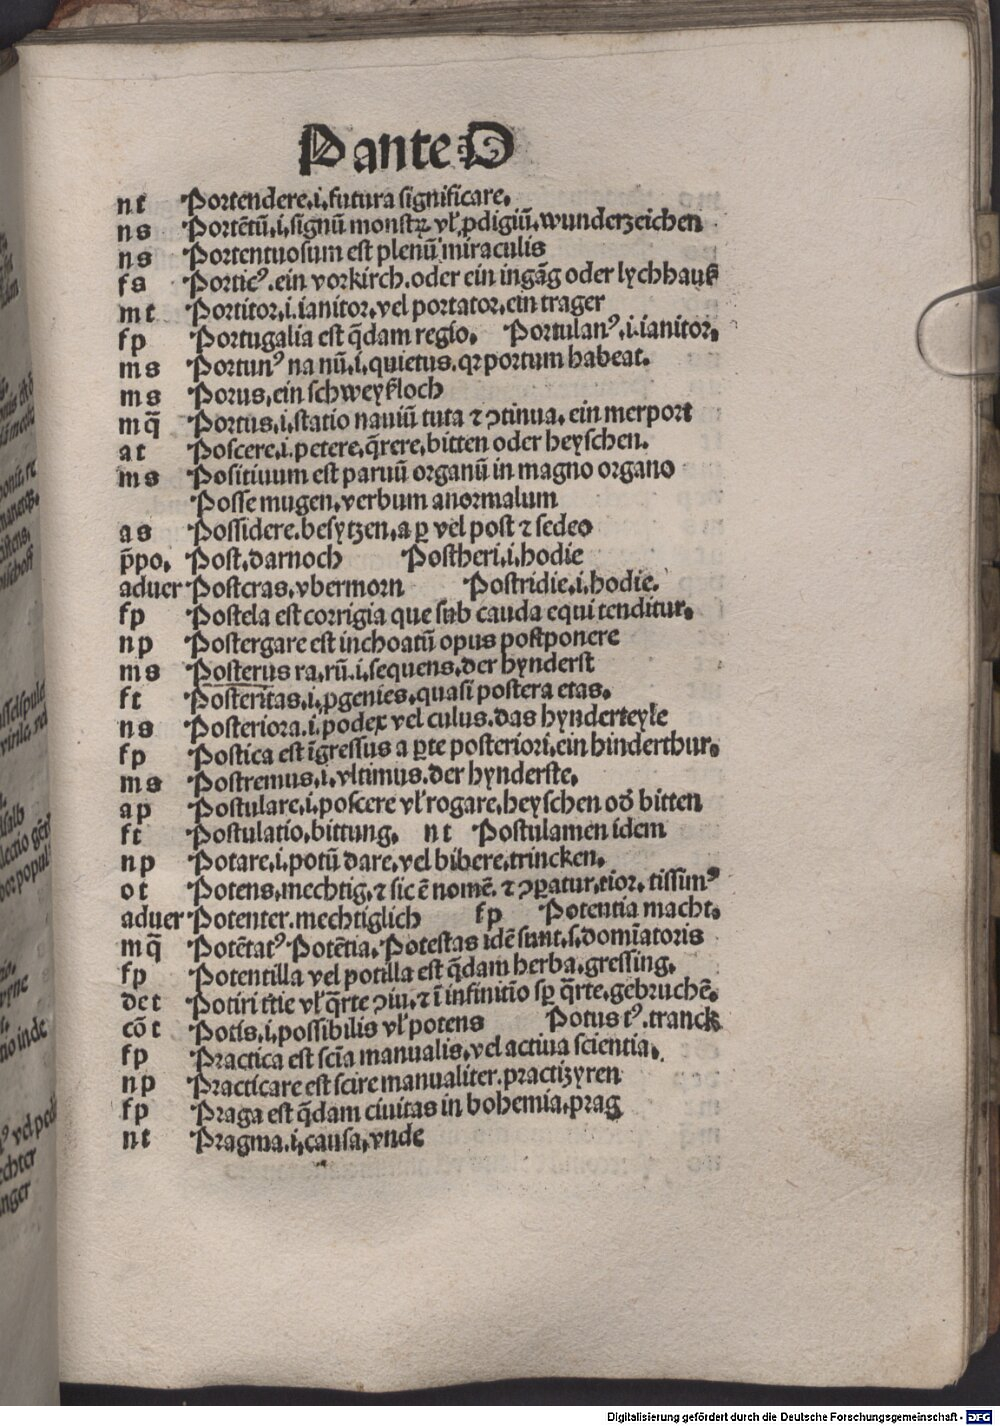 Pante O
nt Portendere.i.futura significare.
ns Portētū.i.signū monstꝝ vľ ꝓdigiū.wunderzeichen
ns Portentuosum est plenū miraculis
fs Porticꝰ.ein vorkirch.oder ein ingāg oder lychhauß
mt Portitor.i.ianitor.vel portator.ein trager
fp Portugalia est q̄dam regio. Portulanꝰ.i.ianitor.
ms Portunꝰ na nū.i.quietus.qꝛ portum habeat.
ms Porus.ein schweyßloch
mq̄ Portus.i.statio nauiū tuta ⁊ ↄtinua.ein merport
at Poscere.i.petere.q̄rere.bitten oder heyschen.
ms Positiuum est paruū organū in magno organo
Posse mugen.verbum anormalum
as Possidere.besytzen.a ꝑ vel post ⁊ sedeo
p̄po. Post.darnoch Postheri.i.hodie
aduer Postcras.vbermorn Postridie.i.hodie.
fp Postela est corrigia que sub cauda equi tenditur.
np Postergare est inchoatū opus postponere
ms Posterus ra.rū.i.sequens.der hynderst
ft Posteritas.i.ꝓgenies.quasi postera etas.
ns Posteriora.i.podex vel culus.das hynderteyle
fp Postica est īgressus a ꝑte posteriori.ein hinderthur.
ms Postremus.i.vltimus.der hynderste.
ap Postulare.i.poscere vľ rogare.heyschen od̄ bitten
ft Postulatio.bittung. nt Postulamen idem
np Potare.i.potū dare.vel bibere.trincken.
ot Potens.mechtig.⁊ sic ē nomē. ⁊ ↄꝑatur.tior. tissimꝰ
aduer Potenter.mechtiglich fp Potentia macht.
mq̄ Potētatꝰ Potētia.Potestas idē sunt.s.domīatoris
fp Potentilla vel potilla est q̄dam herba.gressing.
det Potiri t̄tie vľ q̄rte ↄiu.⁊ ī infinitīo sꝑ q̄rte.gebruchē.
cōt Potis.i.possibilis vľ potens Potus tꝰ.tranck
fp Practica est scīa manualis.vel actiua scientia.
np Practicare est scire manualiter.practizyren
fp Praga est q̄dam ciuitas in bohemia.prag
nt Pragma.i.causa.vnde
Digitalisierung gefördert durch die Deutsche Forschungsgemeinschaft - DFG